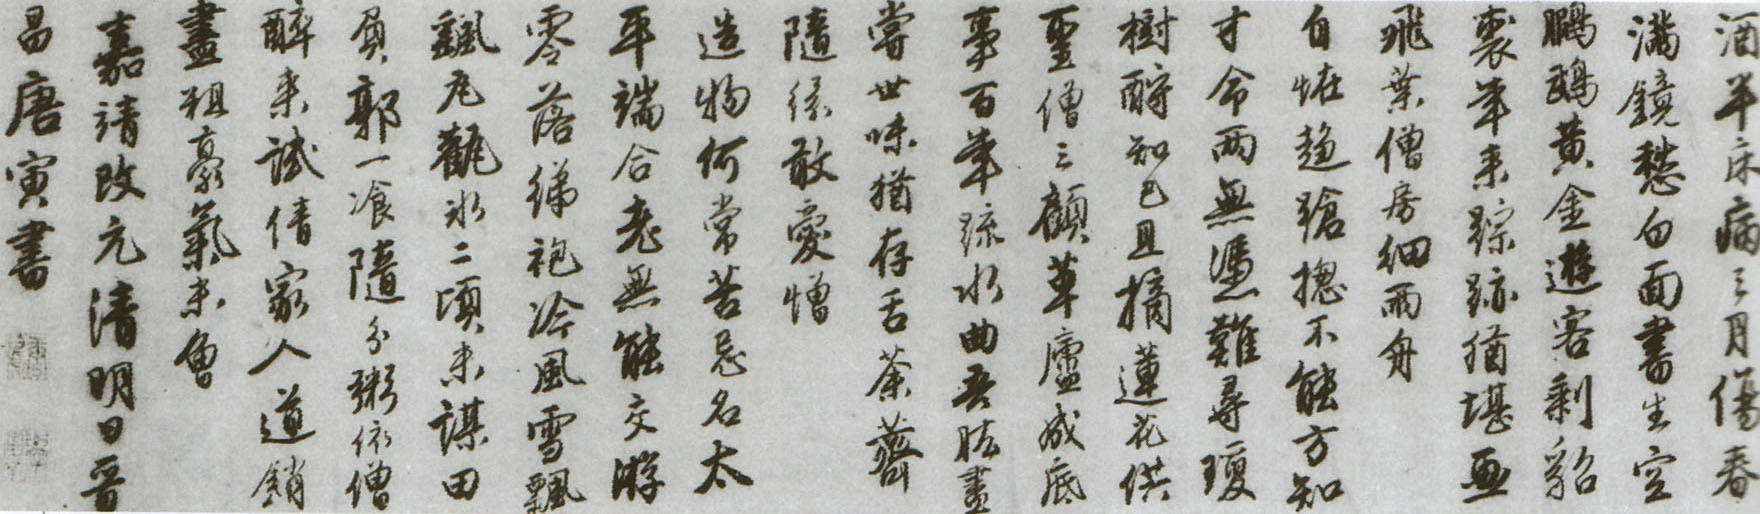 酒半床病三月傷春
滿鏡愁白面書生空
鵬鶚黃金遊客剩貂
裘年来踪跡猶堪畫
飛葉僧房細雨舟
自恠趨蹌揔不能方知
才命兩無憑難尋瓊
樹酧知己且摘蓮花供
聖僧三顧草廬成底
事百年疏水曲吾肱盡
嘗世味猶存舌荼薺
隨緣敢愛憎
造物何常苦忌名太
平端合老無能交游
零落綈袍冷風雪飄
飄瓦甑冰二頃未謀田
負郭一飡隨分粥依僧
醉来試倩家人道銷
盡粗豪氣未曾
嘉靖改元清明日晉
昌唐寅書